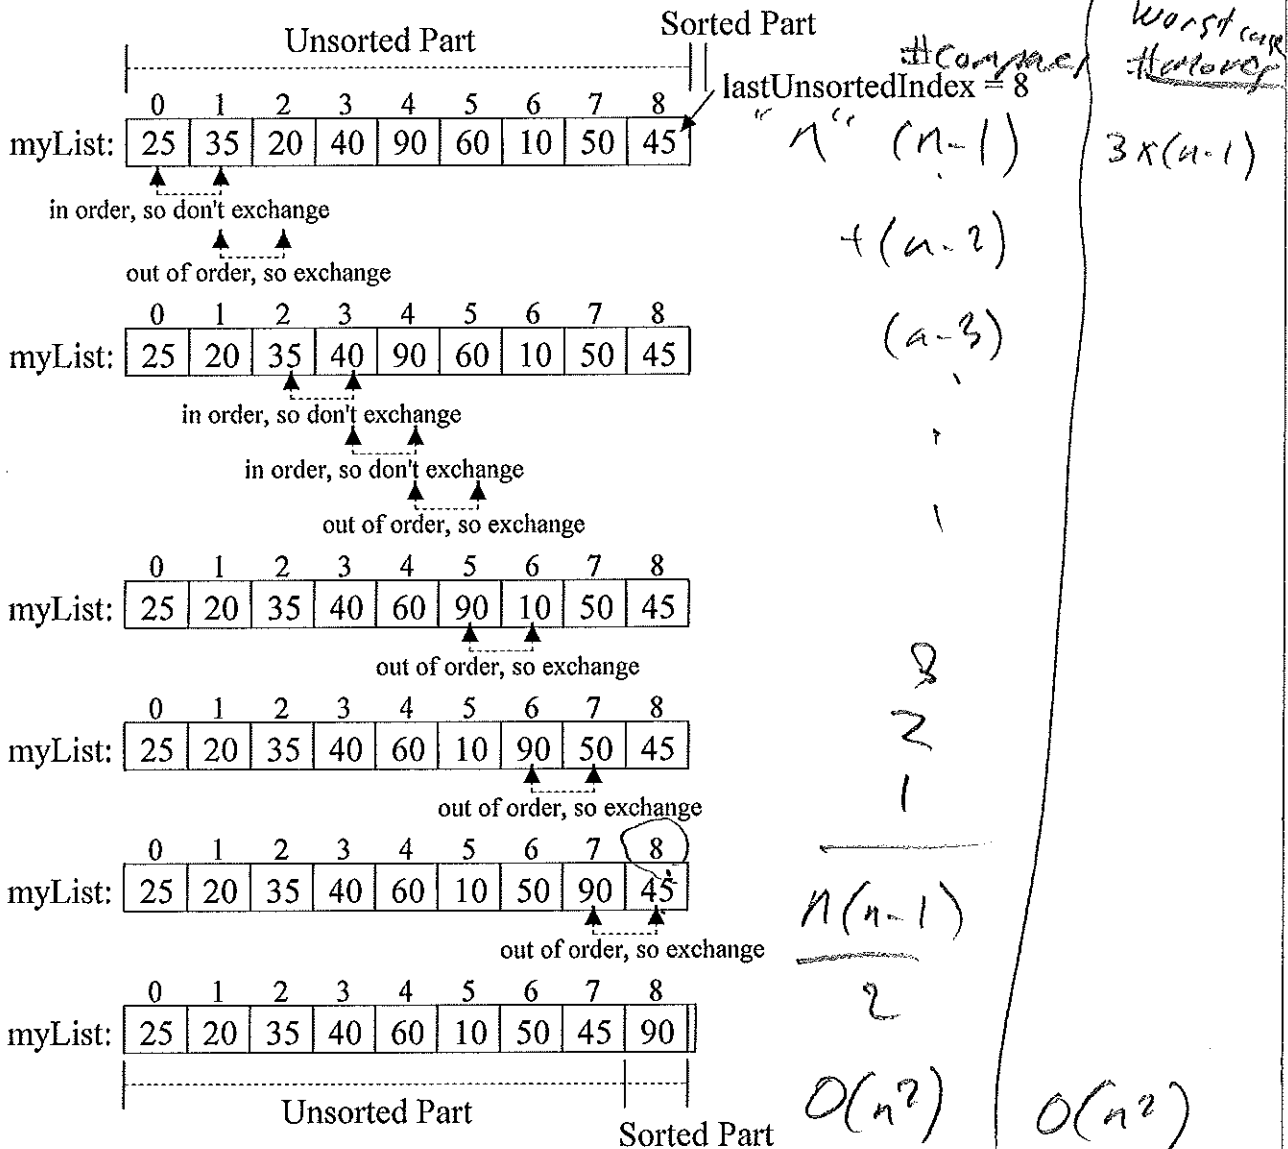 Unsorted Part
Sorted Part
Worst case
#compares
#moves
lastUnsortedIndex = 8
0 1 2 3 4 5 6 7 8
myList: 25 35 20 40 90 60 10 50 45
"n" (n-1)
3x(n-1)
in order, so don't exchange
+(n-2)
out of order, so exchange
0 1 2 3 4 5 6 7 8
myList: 25 20 35 40 90 60 10 50 45
(n-3)
in order, so don't exchange
in order, so don't exchange
out of order, so exchange
0 1 2 3 4 5 6 7 8
myList: 25 20 35 40 60 90 10 50 45
out of order, so exchange
3
0 1 2 3 4 5 6 7 8
2
myList: 25 20 35 40 60 10 90 50 45
out of order, so exchange
1
0 1 2 3 4 5 6 7 8
myList: 25 20 35 40 60 10 50 90 45
n(n-1)
out of order, so exchange
2
0 1 2 3 4 5 6 7 8
myList: 25 20 35 40 60 10 50 45 90
Unsorted Part
Sorted Part
O(n²)
O(n²)